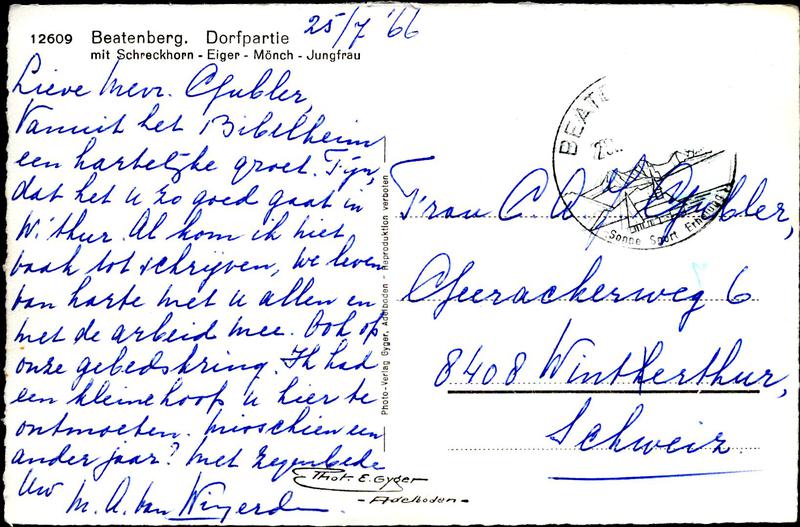 25/7 '66
12609 Beatenberg. Dorfpartie
mit Schreckhorn - Eiger - Mönch - Jungfrau
Lieve Mevr. Gubler,
Vanuit het Bibelheim
een hartelijke groet. Fijn,
dat het u zo goed gaat in
W.'thur. Al kom ik niet
vaak tot schrijven, we leven
van harte met u allen en
met de arbeid mee. Ook op
onze gebedskring. Ik had
een kleine hoop u hier te
ontmoeten. Misschien een
ander jaar? Met zegenbede
Uw M. A. van Wijngerden
Photo-Verlag Gyger, Adelboden - Reproduktion verboten
Phot. E. Gyger
- Adelboden -
BEATE
Sonne Sport Erholung
Frau C A Gubler,
Geerackerweg 6
8408 Winterthur,
Schweiz.